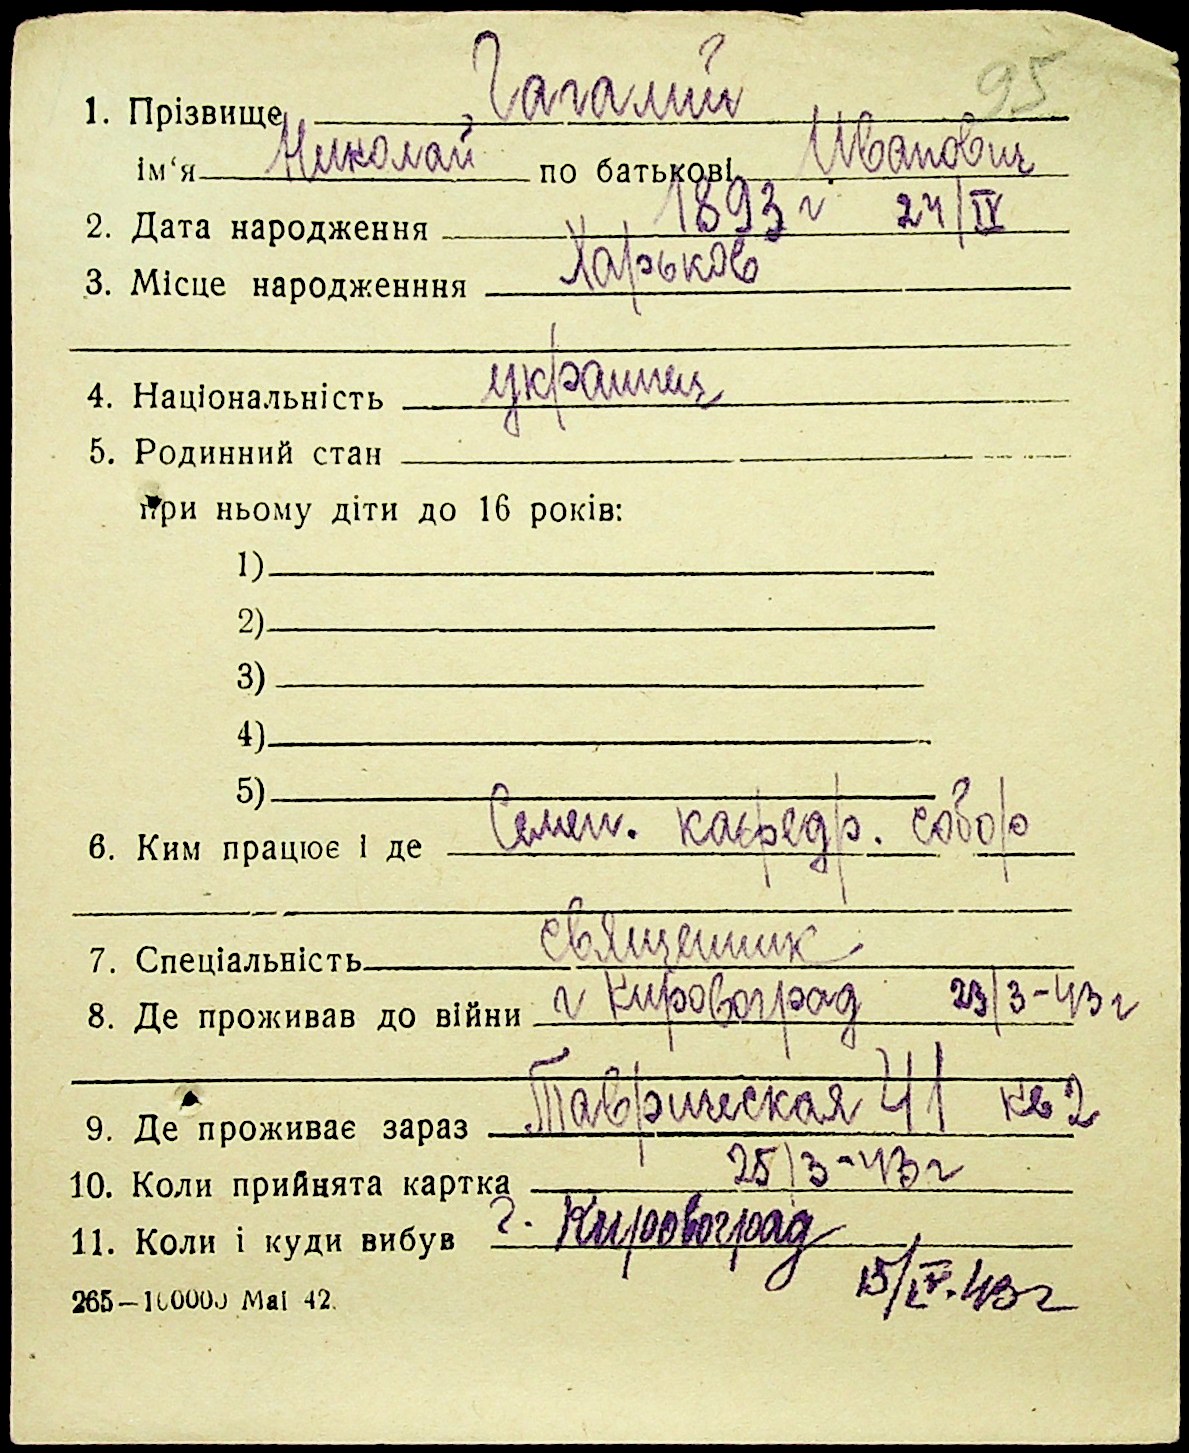 95
1. Прізвище Гагалий
ім‘я Николай по батькові Иванович
2. Дата народження 1893 г 24/IV
3. Місце народженння Харьков
4. Національність украинец
5. Родинний стан
при ньому діти до 16 років:
1)
2)
3)
4)
5)
6. Ким працює і де Семен. кафедр. собор
7. Спеціальність священник
8. Де проживав до війни г Кировоград 23/3-43 г
9. Де проживає зараз Таврическая 41 кв 2
10. Коли прийнята картка 25/3-43 г
11. Коли і куди вибув г. Кировоград
15/IV.43 г
265—100000 Mai 42.